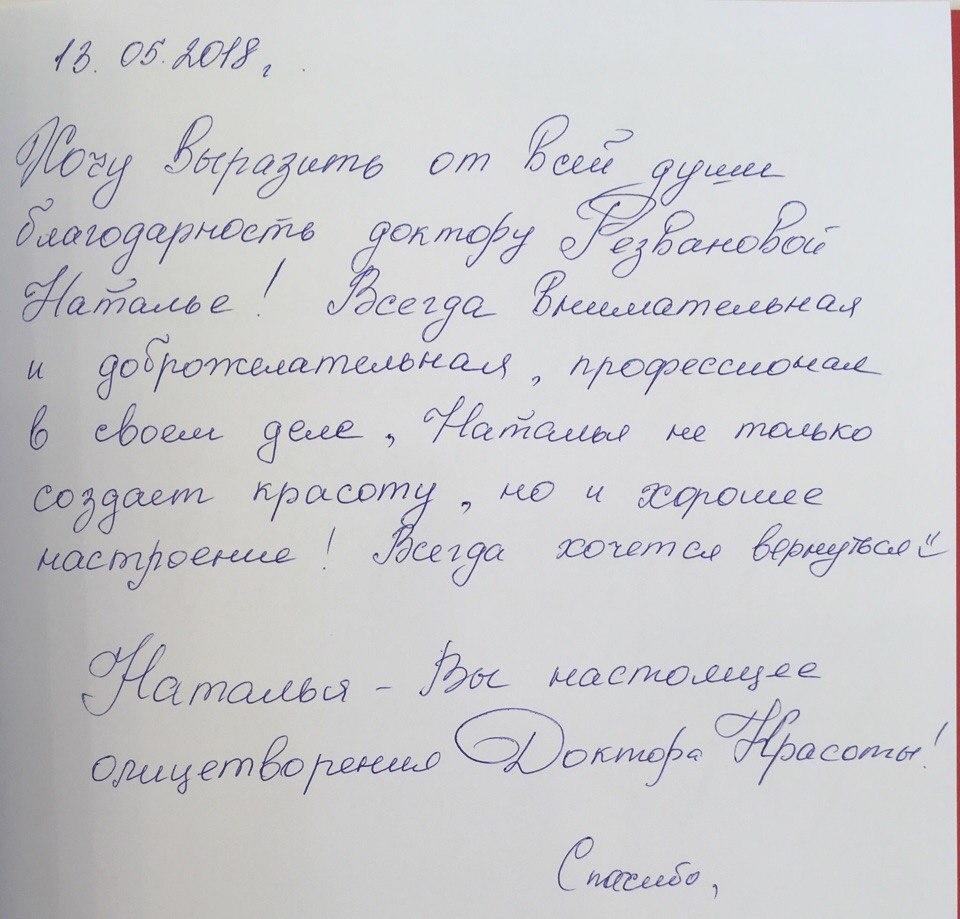 13.05.2018г.
Хочу выразить от всей души
благодарность доктору Резвановой
Наталье! Всегда внимательная
и доброжелательная, профессионал
в своем деле, Наталья не только
создает красоту, но и хорошее
настроение! Всегда хочется вернуться
Наталья - Вы настоящее
олицетворения Доктора Красоты!
Спасибо,